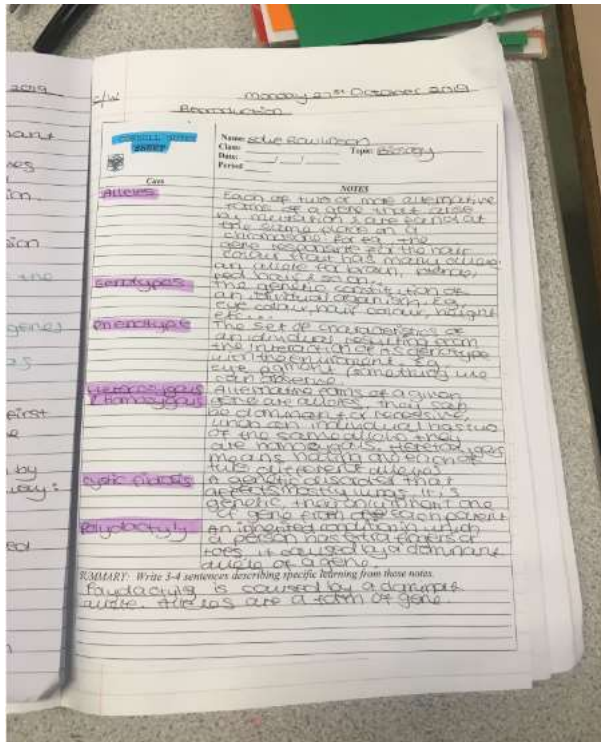 2019
C/W
Monday 21st October 2019
Reproduction
CORNELL NOTES
SHEET
Name:
Class: Topic: Biology
Date: / /
Period
Cues NOTES
Alleles Each of two or more alternative
forms of a gene that arise
by mutation & are found at
the same place on a
chromosome. For eg. the
gene responsible for the hair
colour trait has many alleles:
an allele for brown, blonde,
red hair & so on.
Genotypes The genetic constitution of
an individual organism. E.g.
eye colour, hair colour, height
etc...
Phenotypic The set of characteristics of
an individual resulting from
the interaction of its genotype
with the environment. E.g
eye pigment (something) we
can observe.
Heterozygous Alternating forms of a given
& Homozygous gene are alleles, they can
be dominant or recessive
when an individual has two
of the same allele they
are homozygous. Heterozygous
means having one each of
two different alleles
cystic fibrosis A genetic disorder that
affects mostly lungs. It is
genetic, they only inherit one
of gene from each parent
Polydactyly An inherited condition in which
a person has extra fingers or
toes. it caused by a dominant
allele of a gene.
SUMMARY: Write 3-4 sentences describing specific learning from these notes.
Polydactyly is caused by a dominant
allele. Alleles are a form of gene.
the
genes
first
by
way: